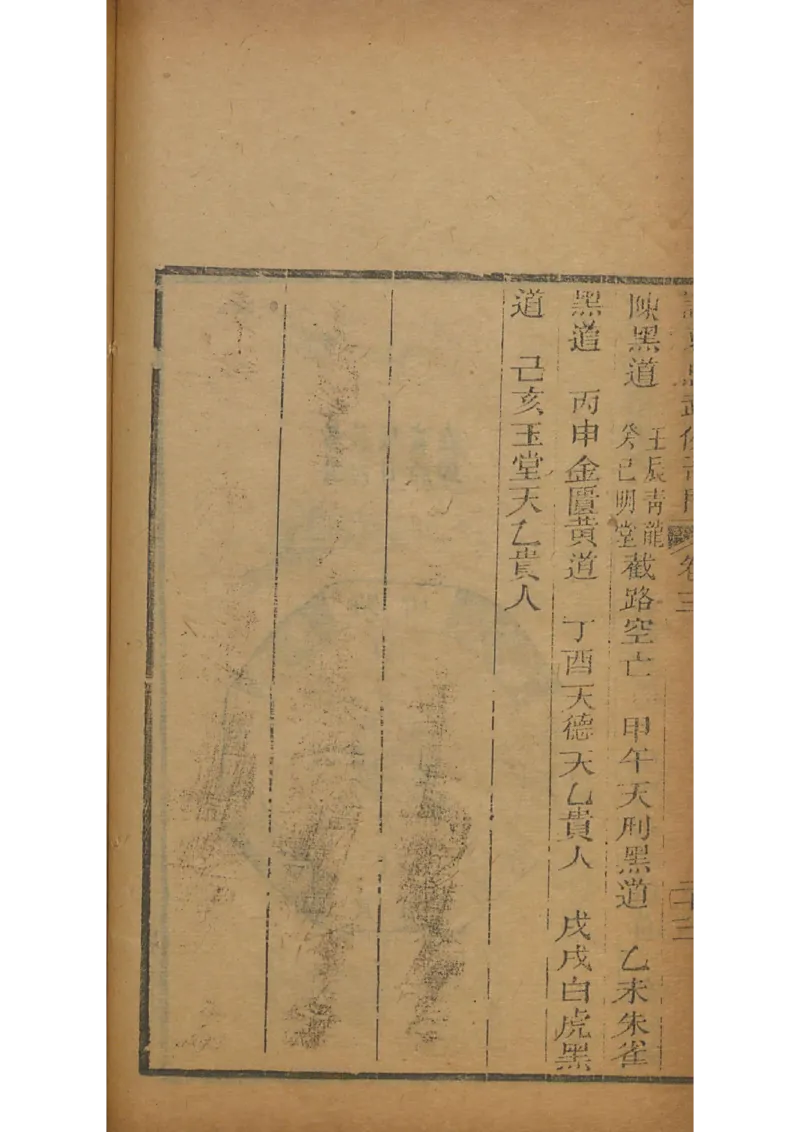 卷三
二十三
陳黑道 壬辰青龍癸己明堂截路空亡 甲午天刑黑道 乙未朱雀
黑道 丙申金匱黄道 丁酉天德天乙貴人 戌戌白虎黑
道 己亥玉堂天乙貴人